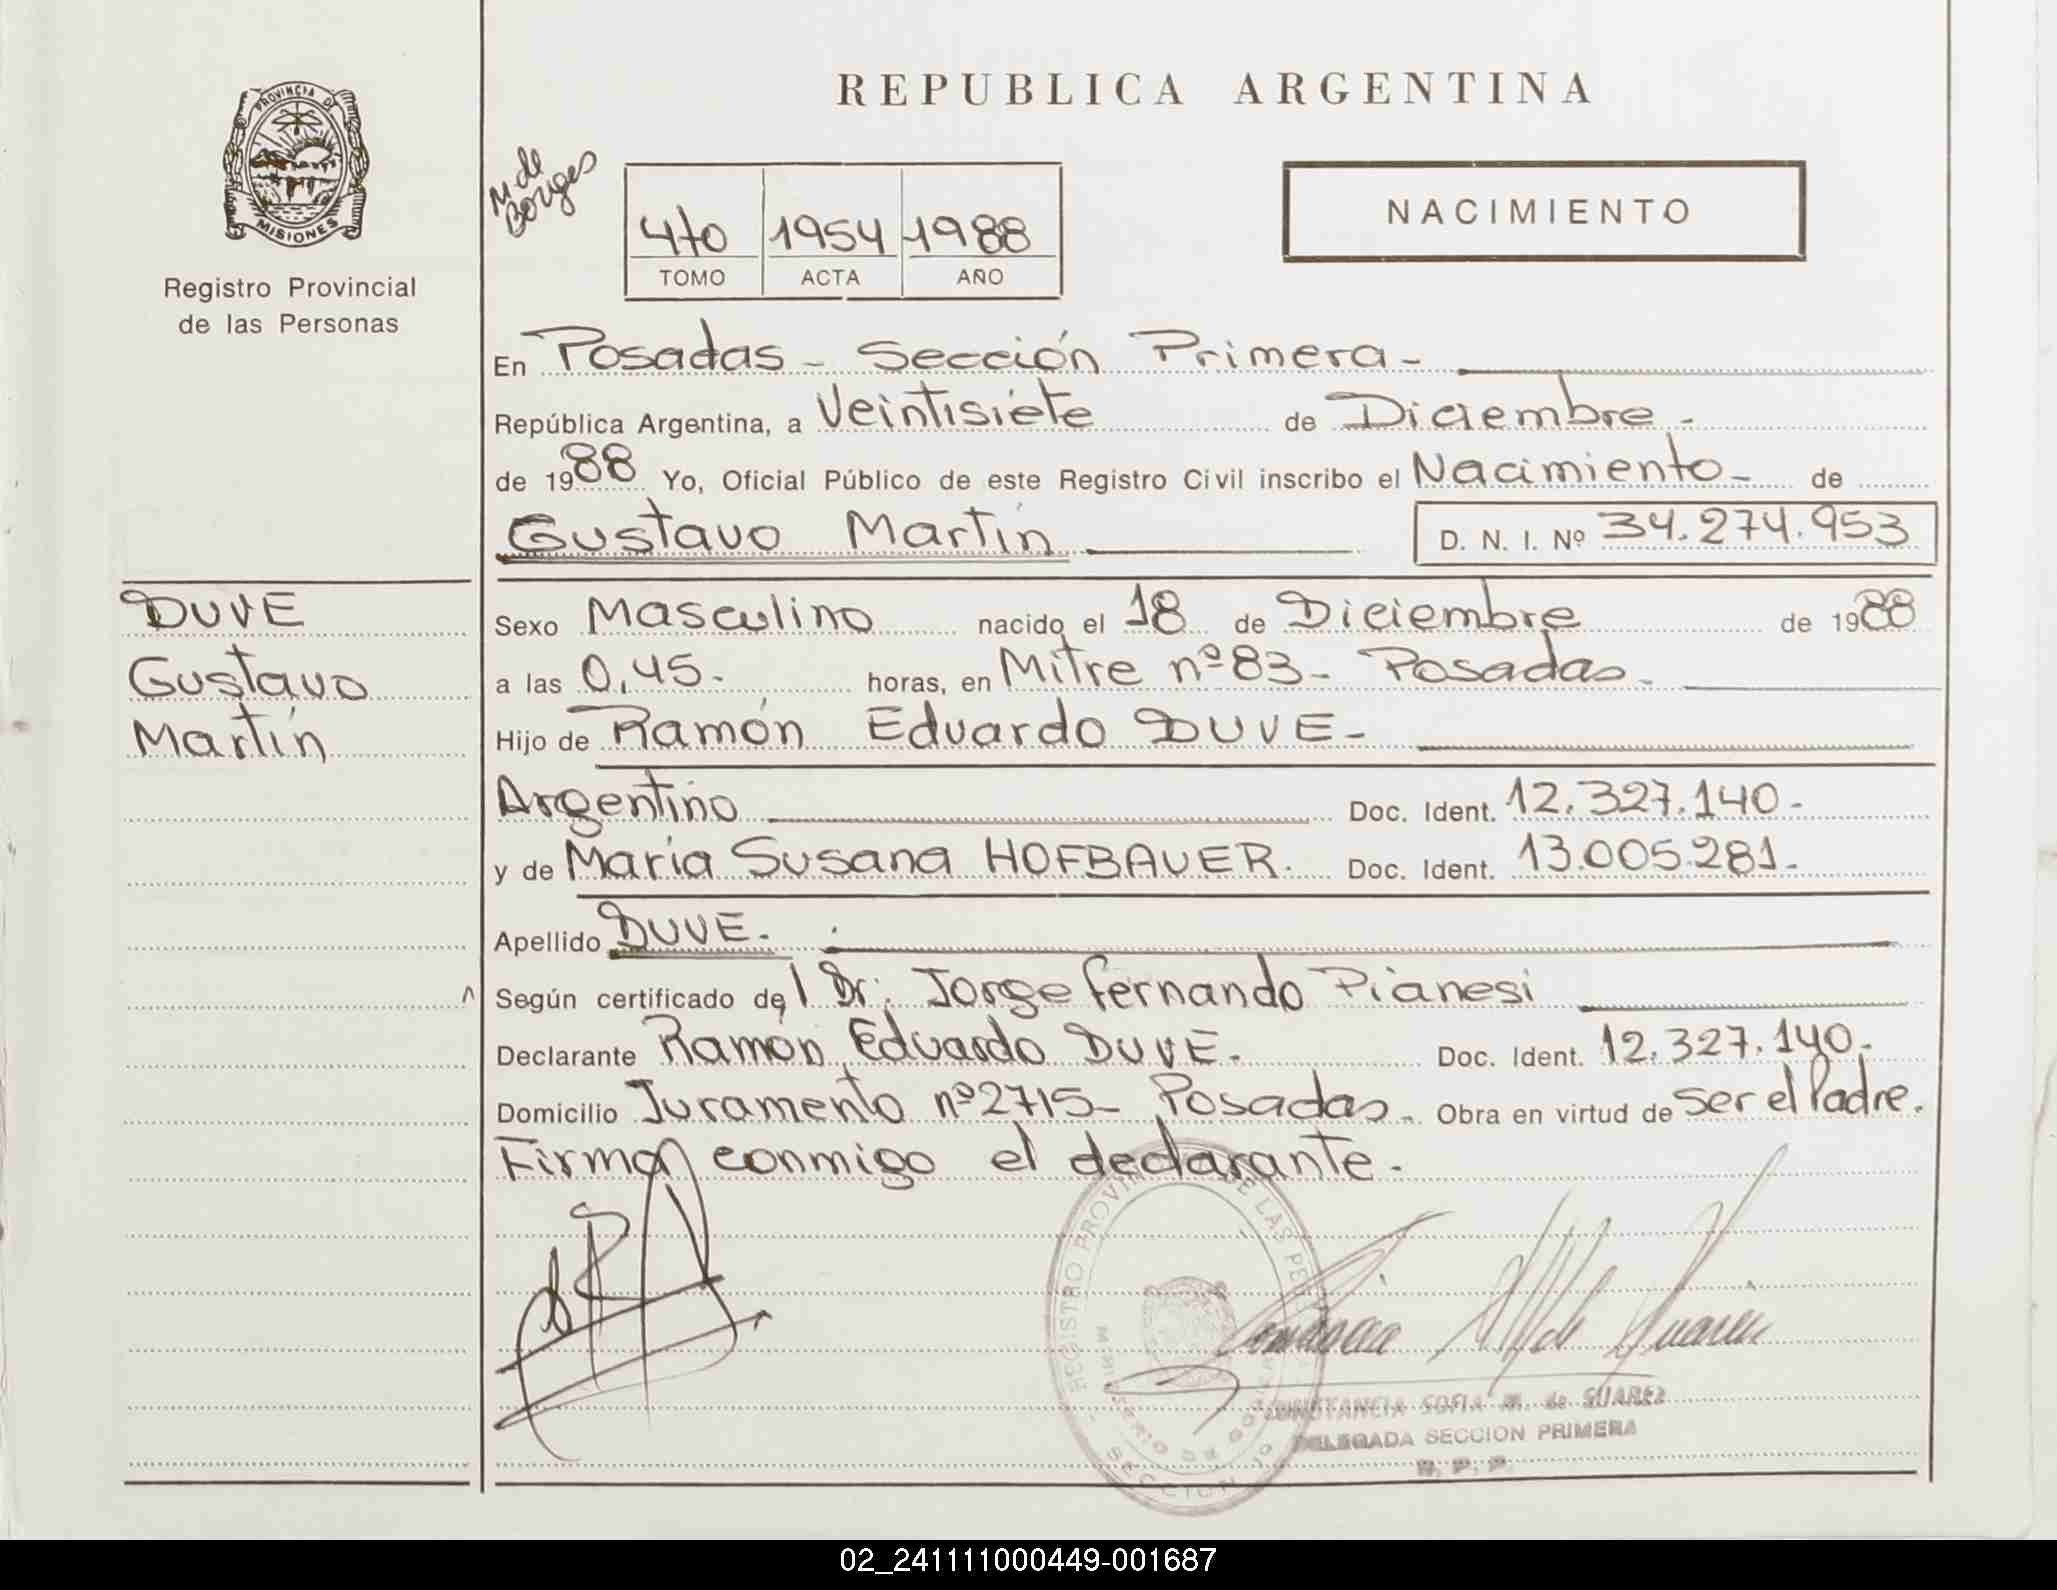 REPUBLICA ARGENTINA
PROVINCIA DE
MISIONES
Registro Provincial
de las Personas
M. de
Borges
NACIMIENTO
4to 1954 1988
TOMO ACTA AÑO
En Posadas - Sección Primera -
República Argentina, a Veintisiete de Diciembre -
de 1988 Yo, Oficial Público de este Registro Civil inscribo el Nacimiento - de
Gustavo Martín D. N. I. Nº 34.274.953
DUVE
Gustavo
Martín
Sexo Masculino nacido el 18 de Diciembre de 1988
a las 0,45. horas, en Mitre nº 83 - Posadas -
Hijo de Ramón Eduardo DUVE -
Argentino Doc. Ident. 12.327.140 -
y de María Susana HOFBAUER. Doc. Ident. 13.005.281 -
Apellido DUVE.
Según certificado del Dr. Jorge Fernando Pianesi
Declarante Ramón Eduardo DUVE. Doc. Ident. 12.327.140.
Domicilio Juramento nº 2715 - Posadas - Obra en virtud de ser el Padre.
Firma conmigo el declarante.
REGISTRO PROVIN DE LAS PE
MINISTERIO DE GOBIER
SECCION 1º
CONSTANCIA SOFIA M. de SUAREZ
DELEGADA SECCION PRIMERA
R. P. P.
02_241111000449-001687